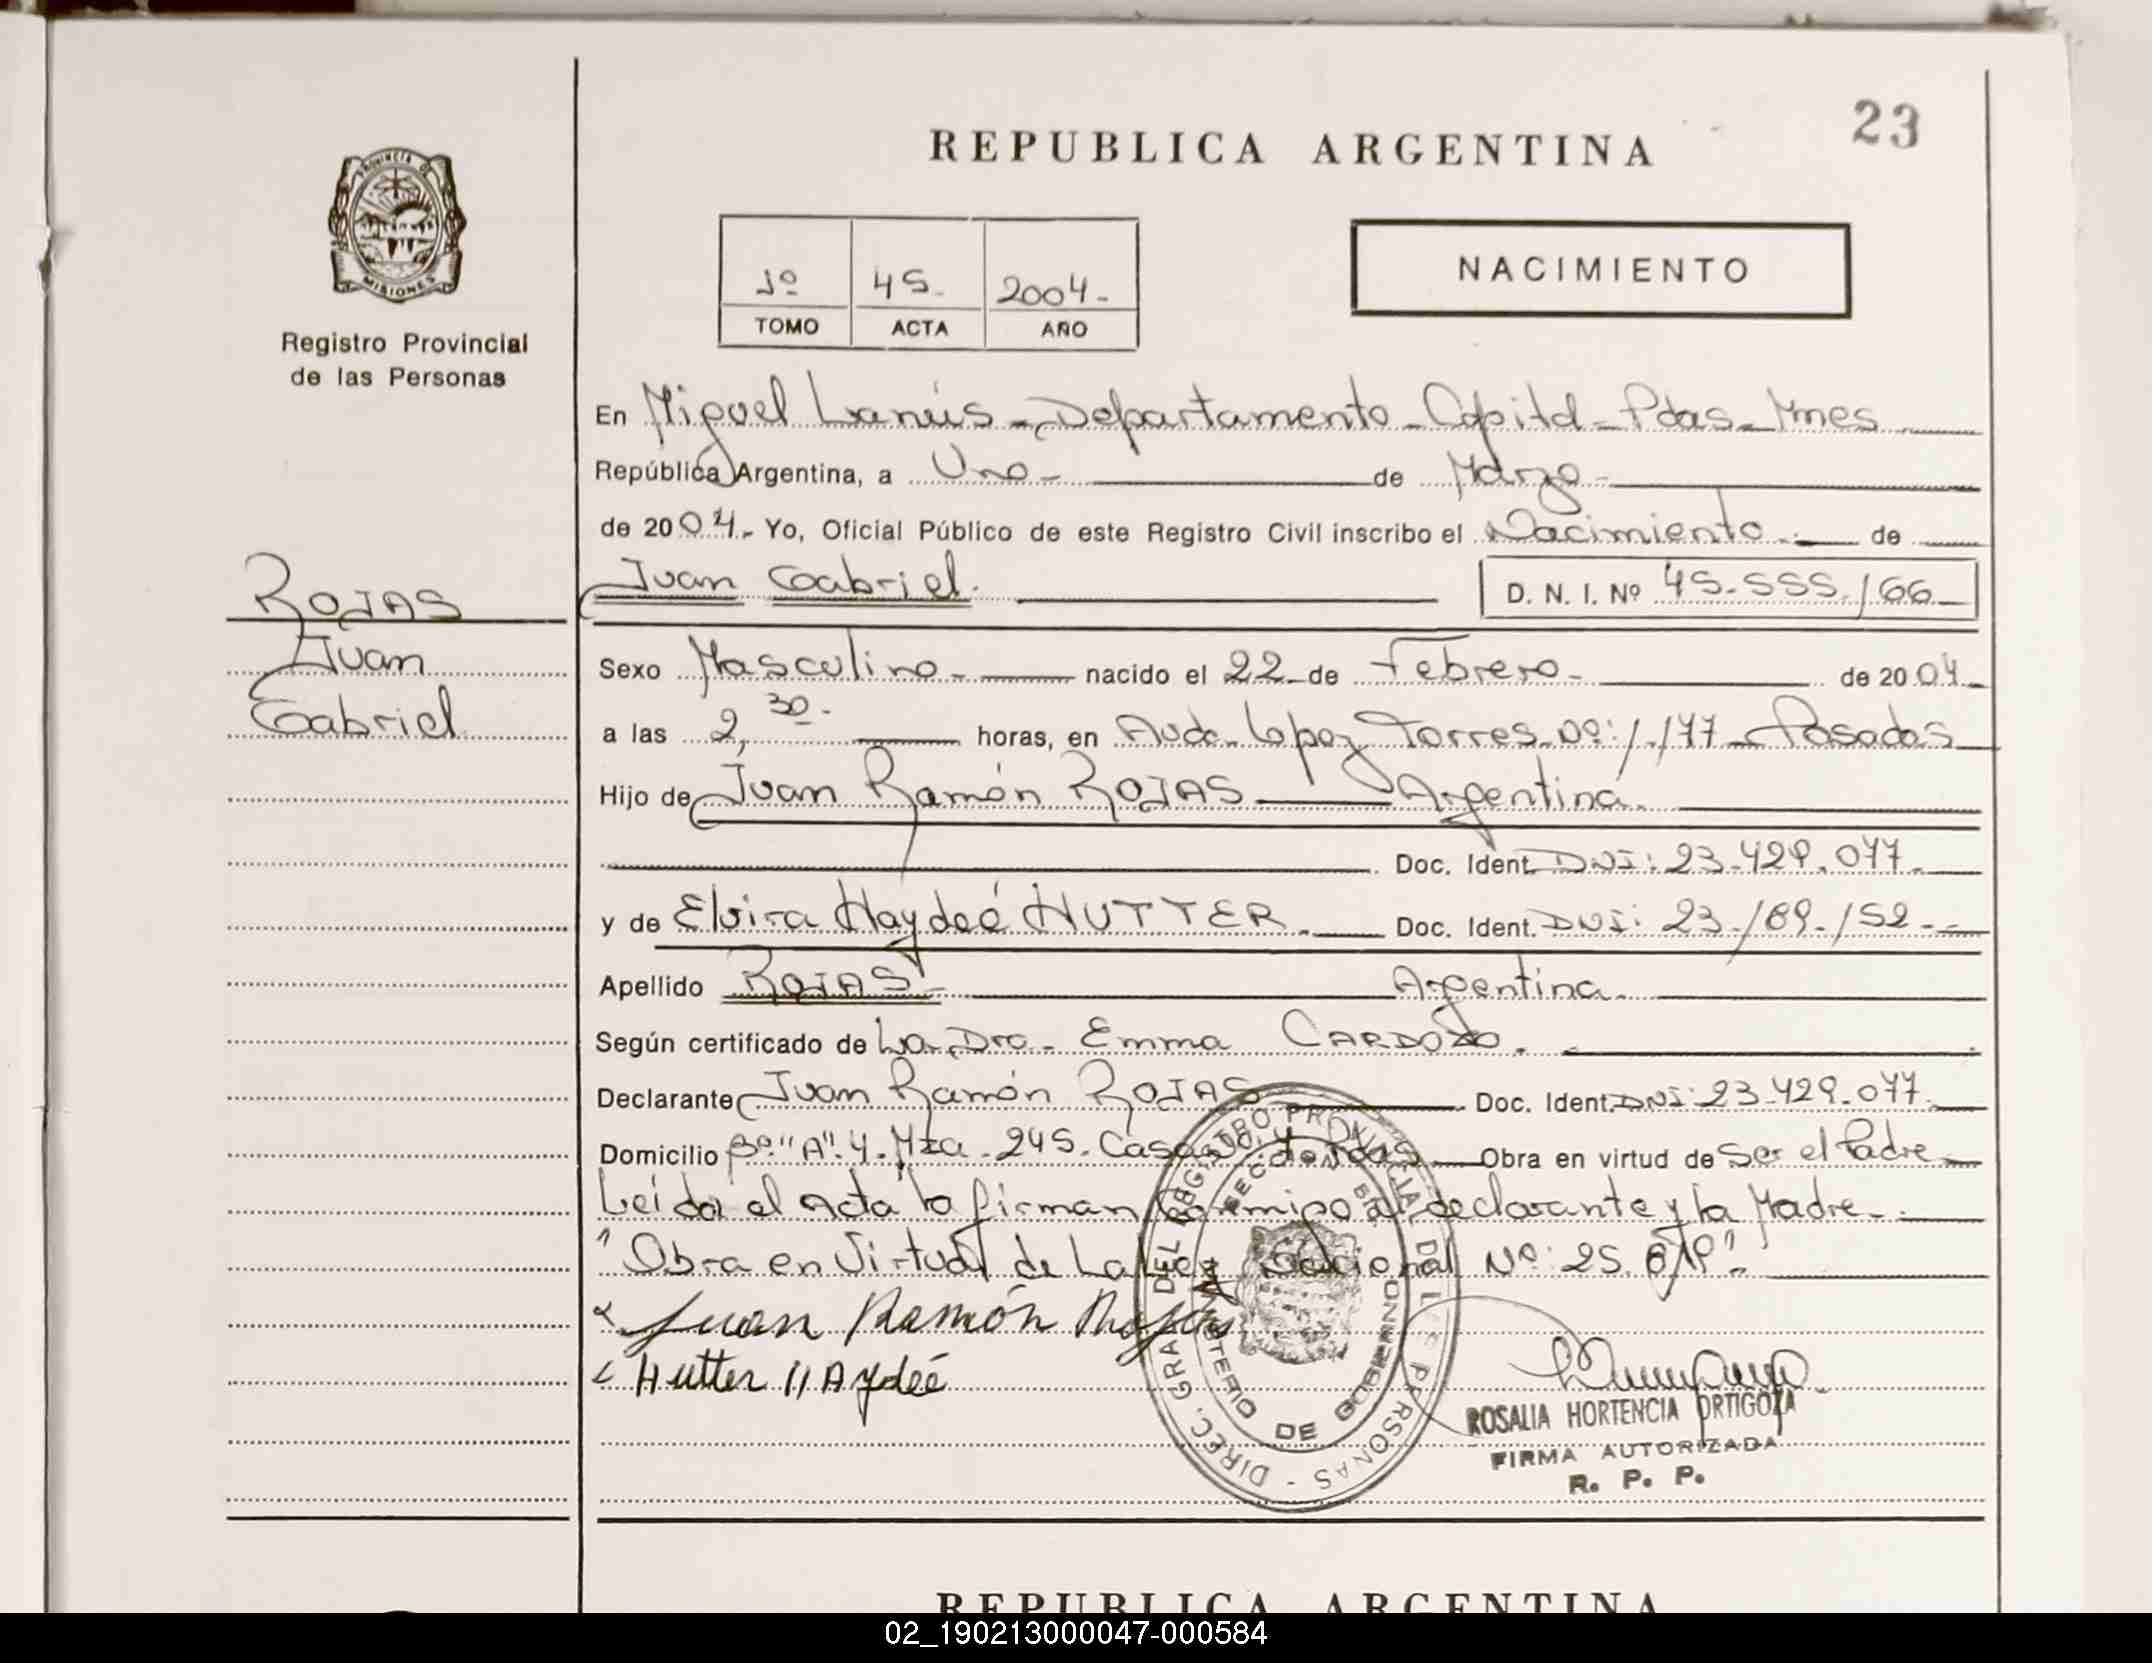 23
REPUBLICA ARGENTINA
PROVINCIA DE
MISIONES
Registro Provincial
de las Personas
1º 45- 2004-
TOMO ACTA AÑO
NACIMIENTO
En Miguel Lanús - Departamento - Capital - Pdas - Mnes
República Argentina, a Uno - de Marzo -
de 2004 - Yo, Oficial Público de este Registro Civil inscribo el Nacimiento - de
Juan Gabriel.
D. N. I. Nº 45-555.166
ROJAS
Juan
Gabriel
Sexo Masculino - nacido el 22 de Febrero - de 2004 -
a las 2,30- horas, en Avda - Lopez Torres - Nº: 1.177 - Posadas
Hijo de Juan Ramón ROJAS Argentina.
Doc. Ident. DNI: 23.429.077 -
y de Elvira Haydeé HUTTER. Doc. Ident. DNI: 23.189.152 -
Apellido ROJAS - Argentina.
Según certificado de La Dra. Emma CARDOZO.
Declarante Juan Ramón ROJAS Doc. Ident. DNI: 23.429.077 -
Domicilio Bº "A" 4. Mza. 245. Casa de Pdas Obra en virtud de Ser el Padre
Leída el Acta la firman Conmigo el declarante y la Madre -
"Obra en Virtud de La Ley Nacional Nº: 25.819"
Juan Ramón Rojas
Hutter Haydeé
DIREC. GRAL. DEL REGISTRO PROVINCIAL DE LAS PERSONAS
MINISTERIO DE GOBIERNO
ROSALIA HORTENCIA ORTIGOZA
FIRMA AUTORIZADA
R. P. P.
REPUBLICA ARGENTINA
02_190213000047-000584